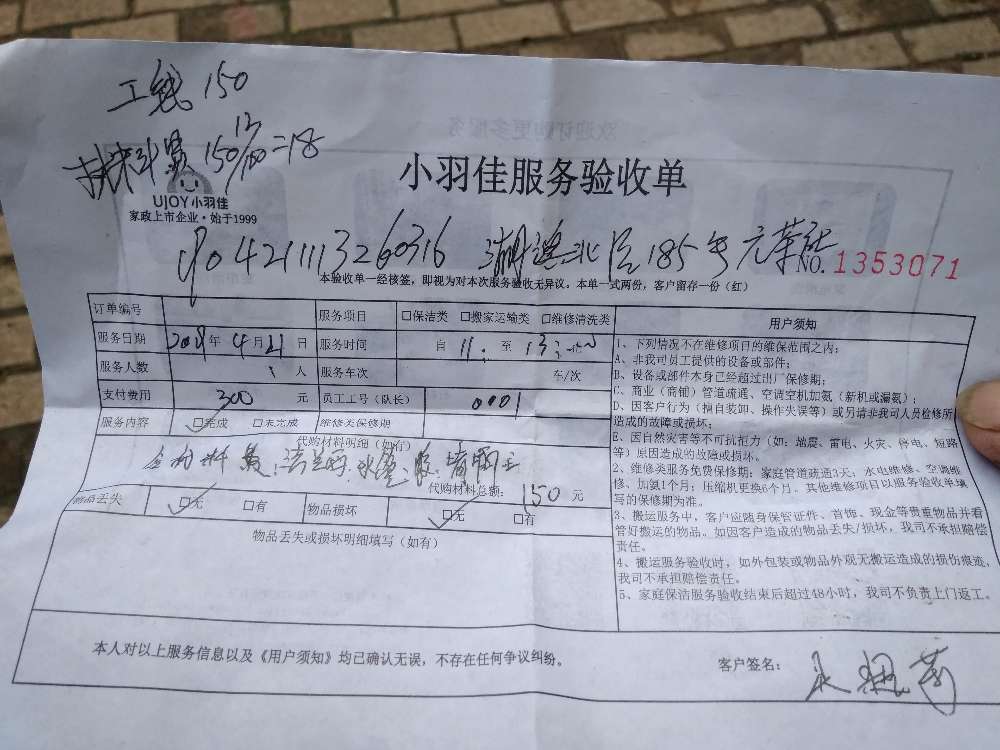 工钱 150
材料费 150 12/100=18
UJOY小羽佳
家政上市企业·始于1999
小羽佳服务验收单
04211113260316 湖滨北 185号
NO. 1353071
本验收单一经核签，即视为对本次服务验收无异议。本单一式两份，客户留存一份（红）
订单编号 服务项目 □保洁类 □搬家运输类 □维修清洗类
服务日期 年 4月21日 服务时间 自 11: 至 13:
服务人数 人 服务车次 车/次
支付费用 300 元 员工工号（队长） 0001
服务内容 □完成 □未完成 维修类保修期
代购材料明细（如有）
代购材料总额： 150 元
物品丢失 □无 □有 物品损坏 □无 □有
物品丢失或损坏明细填写（如有）
用户须知
1、下列情况不在维修项目的维保范围之内：
A、非我司员工提供的设备或部件；
B、设备或部件本身已经超过出厂保修期；
C、商业（商铺）管道疏通、空调空机加氨（新机或漏氨）；
D、因客户行为（擅自装卸、操作失误等）或另请非我司人员检修所
造成的故障或损坏；
E、因自然灾害等不可抗拒力（如：地震、雷电、火灾、停电、短路
等）原因造成的故障或损坏。
2、维修类服务免费保修期：家庭管道疏通3天；水电维修、空调维
修、加氨1个月；压缩机更换6个月。其他维修项目以服务验收单填
写的保修期为准。
3、搬运服务中，客户应随身保管证件、首饰、现金等贵重物品并看
管好搬运的物品。如因客户造成的物品丢失/损坏，我司不承担赔偿
责任。
4、搬运服务验收时，如外包装或物品外观无搬运造成的损伤痕迹，
我司不承担赔偿责任。
5、家庭保洁服务验收结束后超过48小时，我司不负责上门返工。
本人对以上服务信息以及《用户须知》均已确认无误，不存在任何争议纠纷。
客户签名：